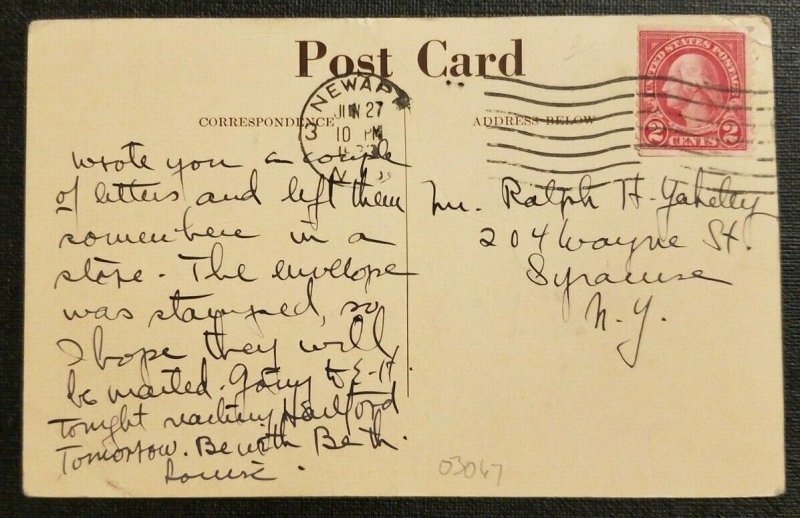 Post Card
CORRESPONDENCE
ADDRESS BELOW
NEWARK
JUN 27
10 PM
N.J.
3
UNITED STATES POSTAGE
2 CENTS 2
wrote you a couple
of letters and left them
somewhere in a
store. The envelope
was stamped, so
I hope they will
be mailed. Going to E-H
tonight reaching Hartford
Tomorrow. Be with Beth.
Louise.
Mr. Ralph H.
204 Wayne St.
Syracuse
N.Y.
03047